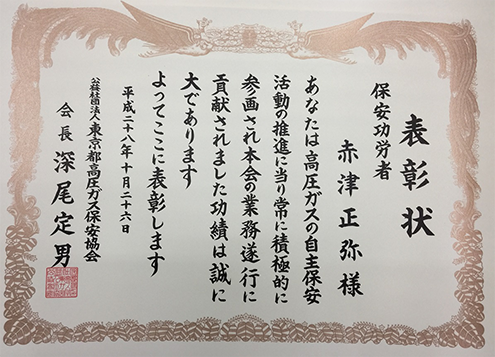 表彰状
保安功労者
赤津正弥様
あなたは高圧ガスの自主保安
活動の推進に当り常に積極的に
参画され本会の業務遂行に
貢献されました功績は誠に
大であります
よってここに表彰します
平成二十八年十月二十六日
公益社団法人東京都高圧ガス保安協会
会長 深尾定男